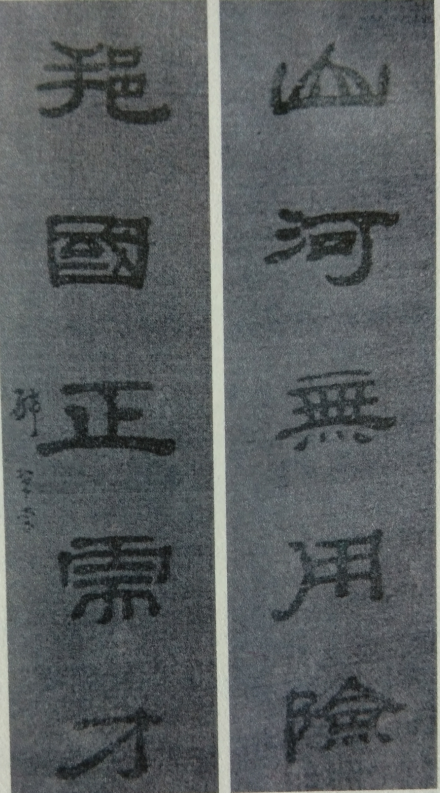 山河無用險
邦國正需才